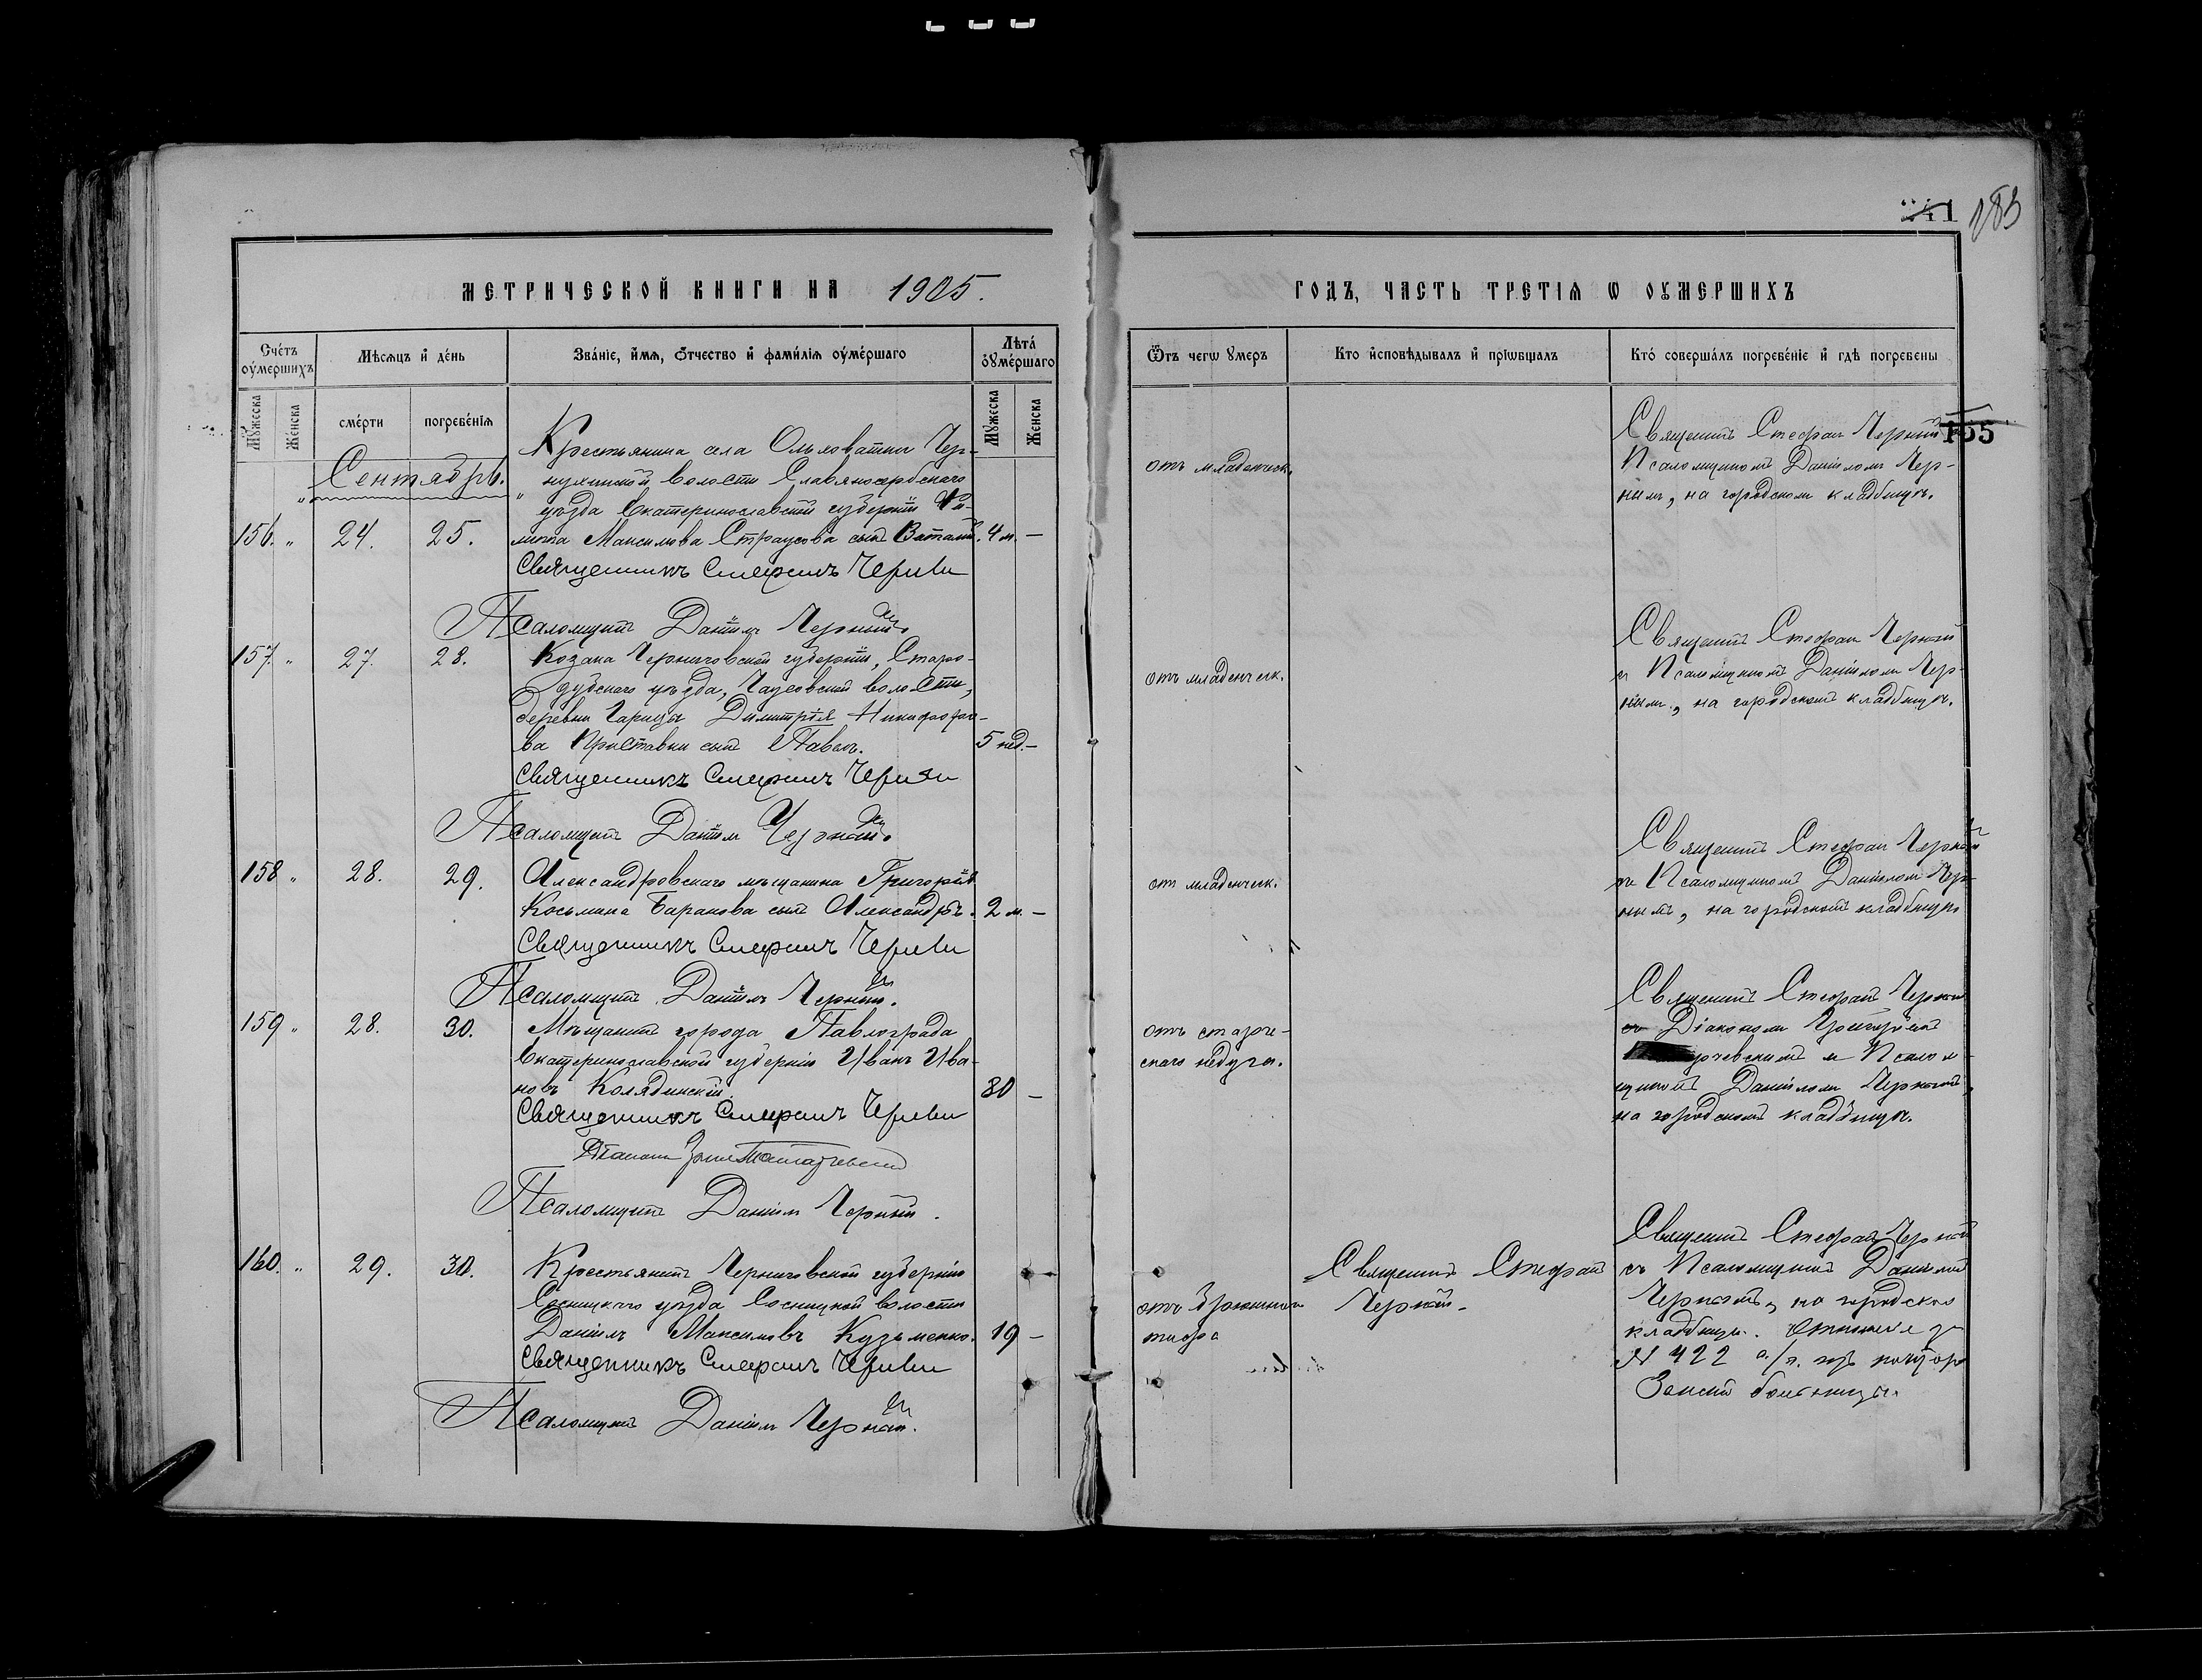 183
МЕТРИЧЕСКОЙ КНИГИ НА 1905.
ГОДЪ, ЧАСТЬ ТРЕТІЯ Ѡ ОУМЕРШИХЪ
Счетъ оумершихъ
Мѣсяцъ и день
Званіе, имя, отчество и фамилія оумершаго
Лѣта оумершаго
Мужеска
Женска
смерти
погребенія
Мужеска
Женска
Ѿтъ чегѡ умеръ
Кто исповѣдывалъ и пріѡбщалъ
Кто совершалъ погребеніе и гдѣ погребены
155
Сентябрь.
Крестьянина села Ольховатки Чер-
нухинской волости Славяносербскаго
уѣзда Екатеринославской губерніи
156. " 24. 25. Максимова Страусова сынъ Виталій. 4 м. –
Священникъ Стефанъ Черный
Псаломщикъ Даніилъ Черный.
отъ младенческ.
Священникъ Стефанъ Черный
Псаломщикомъ Даніиломъ Чер-
нымъ, на городскомъ кладбищѣ.
157. " 27. 28. Козака Черниговской губерніи, Старо-
дубскаго уѣзда, волости,
деревни Гарицы Димитрія Никифоро-
ва Приставки сынъ Павелъ. 5 нед. –
Священникъ Стефанъ Черный
Псаломщикъ Даніилъ Черный.
отъ младенческ.
Священникъ Стефанъ Черный
и Псаломщикомъ Даніиломъ Чер-
нымъ, на городскомъ кладбищѣ.
158 " 28. 29. Александровскаго мѣщанина Григорія
Косьмина Баранова сынъ Александръ. 2 м. –
Священникъ Стефанъ Черный
Псаломщикъ Даніилъ Черный.
от младенческ.
Священникъ Стефанъ Черный
Псаломщикомъ Даніиломъ Чер-
нымъ, на городскомъ кладбищѣ
159 " 28. 30. Мѣщанинъ города Павлограда
Екатеринославской губерніи Иванъ Ива-
новъ Колядинскій. 80 –
Священникъ Стефанъ Черный
Діаконъ
Псаломщикъ Даніилъ Черный.
отъ старче-
скаго недуга.
Священникъ Стефанъ Черный
съ Діакономъ Григоріемъ
и Псалом-
щикомъ Даніиломъ Чернымъ,
на городскомъ кладбищѣ.
160. " 29. 30. Крестьянинъ Черниговской губерніи
Сосницкаго уѣзда Сосницкой волости
Даніилъ Максимовъ Кузьменко. 19 –
Священникъ Стефанъ Черный
Псаломщикъ Даніилъ Черный.
отъ брюшного
тифа
Священникъ Стефанъ
Черный.
Священникъ Стефанъ Черный
съ Псаломщикомъ Даніиломъ
Чернымъ, на городскомъ
кладбищѣ. Отношеніе за
N 422
больницы.